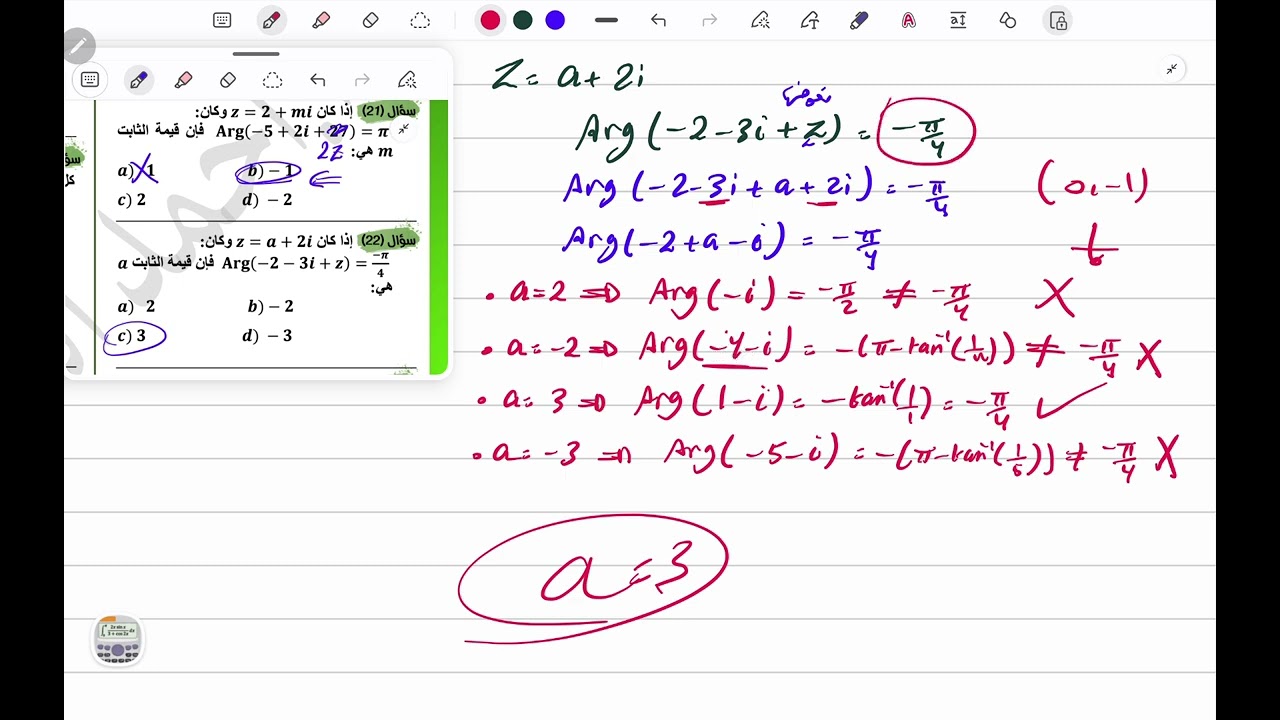 سؤال (21) إذا كان z = 2 + mi وكان:
Arg(−5 + 2i + 2z) = π فإن قيمة الثابت
m هي: 2Z
a) 1 b) − 1
c) 2 d) − 2
سؤال (22) إذا كان z = a + 2i وكان:
Arg(−2 − 3i + z) = −π/4 فإن قيمة الثابت a
هي:
a) 2 b) − 2
c) 3 d) − 3
Z = a + 2i
نعوضها
Arg (−2−3i + z) = −π/4
Arg (−2−3i + a + 2i) = −π/4 (0, −1)
Arg(−2+a − i) = −π/4
• a=2 ⇒ Arg(−i) = −π/2 ≠ −π/4 X
• a=−2 ⇒ Arg(−4−i) = −(π−tan⁻¹(1/4)) ≠ −π/4 X
• a=3 ⇒ Arg(1−i) = −tan⁻¹(1/1) = −π/4 ✓
• a=−3 ⇒ Arg(−5−i) = −(π−tan⁻¹(1/5)) ≠ −π/4 X
a=3